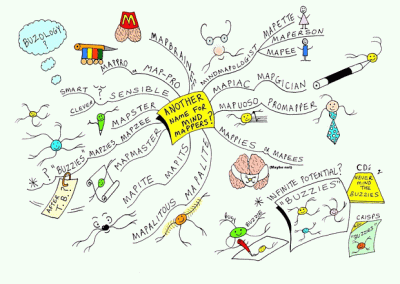 BUZOLOGY
?
ANOTHER
NAME FOR
MIND
MAPPERS?
MAPBRAINERS
MINDMAPOLOGIST
MAPETTE
MAPERSON
MAPEE
MAPIAC
MAPGICIAN
MAPUOSO
PROMAPPER
MAPPIES or MAPEES
(Maybe not)
INFINITE POTENTIAL?
= "BUZZIES"
CDs
NEVER
MIND
THE
BUZZIES
CRISPS
BUZZIES
BUZZIE
MAPALITE
MAPALITOUS
MAPITS
MAPITE
MAPMASTER
MAPZIES
MAPZEE
? "BUZZIES
AFTER
T.B.?
MAPSTER
SMART
CLEVER
SENSIBLE
MAPPRO
or
MAP-PRO